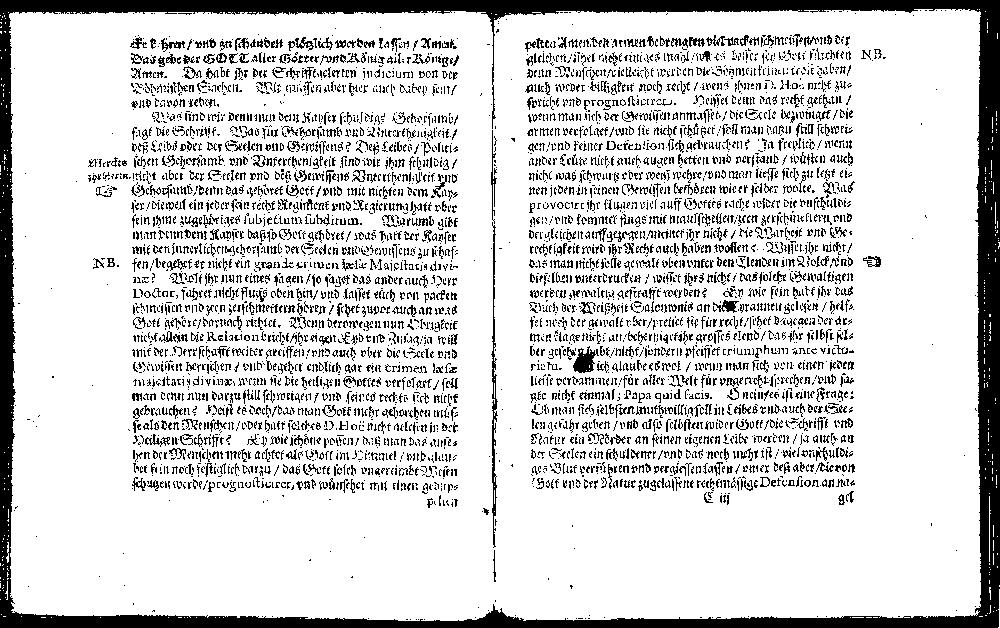 kehren / vnd zu schanden plötzlich werden lassen / Amen.
Das gebe der GOTT aller Götter / vnd König aller Könige /
Amen. Da habt ihr der Schrifftgelerten judicium von der
Böhmischen Sachen. Wir müssen aber hier auch dabey sein /
vnd davon reden.
Was sind wir denn nun dem Kayser schuldig? Gehorsamb /
sagt die Schrifft. Was für Gehorsamb vnd Vnterthenigkeit /
deß Leibs oder der Seelen vnd Gewissens? Deß Leibes / Politi-
schen Gehorsamb vnd Vnterthenigkeit sind wir ihm schuldig /
nicht aber der Seelen vnd deß Gewissens Vnterthenigkeit vnd
Gehorsamb / denn das gehöret Gott / vnd mit nichten dem Kay-
ser / dieweil ein jeder sein recht Regiment vnd Regierung hatt vber
sein ihme zugehöriges subjectum subditum. Warumb gibt
man denn dem Kayser daßjh Gott gehöret / was hatt der Kayser
mit den innerlichen gehorsamb der Seelen vnd Gewissens zu schaf-
NB.
fen / begehet er nicht ein grande crimen læsæ Majestatis divi-
næ? Wolt ihr nun eines sagen / so saget das ander auch Herr
Doctor, fahret nicht flugs oben hin / vnd lasset euch von packen
schmeissen vnd zeen zerschmettern hören / sehet zuvor auch an was
Gott gehöre / darnach richtet. Wenn derowegen nun Obrigkeit
nicht allein die Relation bricht / ihr eigen Eyd vnd Zusag / ja will
mit der Herrschafft weiter greiffen / vnd auch vber die Seele vnd
Gewissen herrschen / vnd begehet endlich gar ein crimen læsæ
majestatis divinæ, wenn sie die heiligen Gottes verfolget / soll
man denn nun darzu still schweigen / vnd seines rechts sich nicht
gebrauchen? Heist es doch / das man Gott mehr gehorchen müs-
se als den Menschen / oder hatt solches D. Hoë nicht gelesen in der
Heiligen Schrifft? Ey wie schöne possen / daß man das anse-
hen der Menschen mehr achtet als Gott im Himmel / vnd glau-
bet sein noch festiglich darzu / das Gott solch vngereimbt Wesen
schützen werde / prognosticiret, vnd wünschet mit einen gedop-
pelten
pelten Amen den armen bedrengten viel nackenschmeissen / vnd der
NB.
gleichen / sihet nicht einiges mahl / wie es besser sey Gott fürchten
denn Menschen / vielleicht werden die Böhmen keinen trost haben /
auch weder billigkeit noch recht / wens ihnen D. Hoë nicht zu-
spricht vnd prognosticiret. Heisset denn das recht gethan /
wenn man sich der Gewissen anmasset / die Seele bezwinget / die
armen verfolget / vnd sie nicht schützet / soll man dazu still schwei-
gen / vnd keiner Defension sich gebrauchen? Ja freylich / wenn
ander Leute nicht auch augen hetten vnd verstand / wüsten auch
nicht was schwartz oder weiß wehre / vnd man liesse sich zu letzt ei-
nen jeden in seinen Gewissen bethören wie er selber wolte. Was
provociret ihr flugen viel auff Gottes rache wider die vnschuldi-
gen / vnd kommet flugs mit maulschellen / zeen zerschmettern vnd
dergleichen auffgezogen / meinet ihr nicht / die Warheit vnd Ge-
rechtigkeit wird ihr Recht auch haben wollen? Wisset ihr nicht /
das man nicht solle gewalt vben vnter den Elenden im Volck / vnd
dieselben vnterdrucken / wisset ihrs nicht / das solche Gewaltigen
werden gewaltig gestrafft werden? Ey wie fein habt ihr das
Buch der Weißheit Salomonis an die Tyrannen gelesen / helf-
fet noch der gewalt vber / preiset sie für recht / sehet dagegen der ar-
men klage nicht an / behertziget ihr grosses elend / das ihr selbst sel-
ber gesehen habt / nicht / sondern pfeiffet triumphum ante victo-
riam. ich glaube es wol / wenn man sich von einen jeden
liesse verdammen / für aller Welt für vngerecht sprechen / vnd sa-
gte nicht einmal; Papa quid facis. O nein / es ist eine Frage:
Ob man sich selbsten muthwillig soll in Leibes vnd auch der See-
len gefahr geben / vnd also selbsten wider Gott / die Schrifft vnd
Natur ein Mörder an seinen eigenen Leibe werden / ja auch an
der Seelen ein schuldener / vnd das noch mehr ist / viel vnschuldi-
ges Blut verführen vnd vergiessen lassen / oder deß aber / die von
Gott vnd der Natur zugelassene rechtmässige Defension an na-
C iij
gel